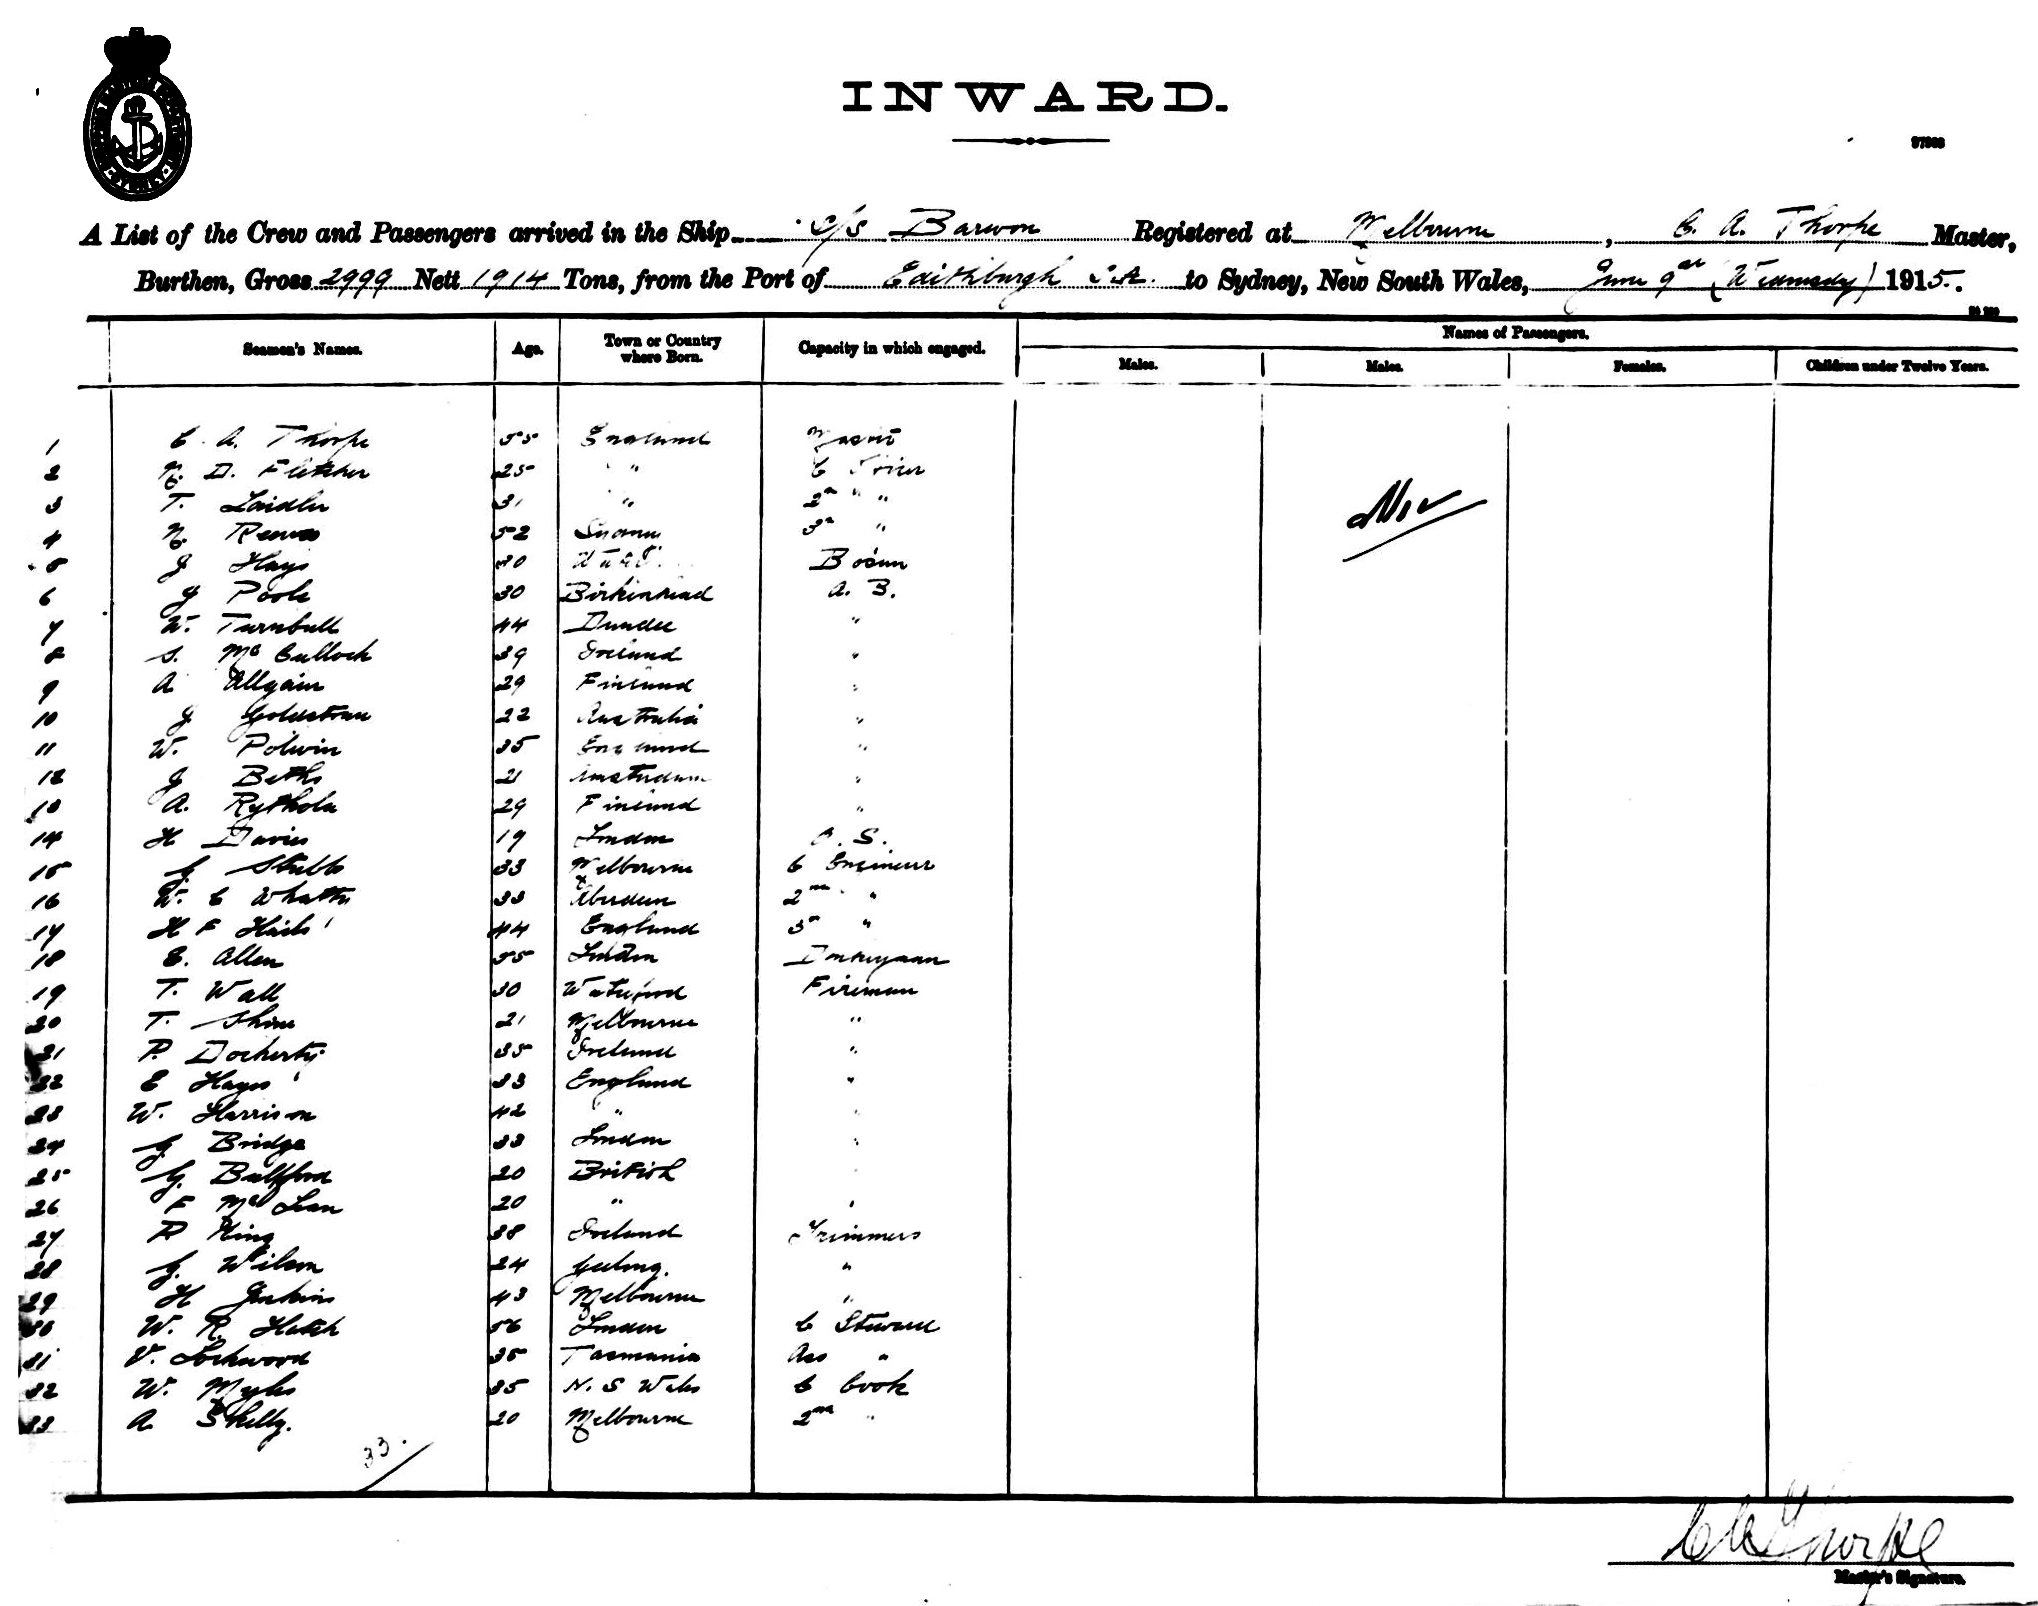 INWARD.
97963
A List of the Crew and Passengers arrived in the Ship s/s Barwon Registered at Melbourne, C. A. Thorpe Master,
Burthen, Gross 2999 Nett 1914 Tons, from the Port of Edithburgh S.A. to Sydney, New South Wales, June 9th (Wednesday) 1915.
Seamen's Names. Age. Town or Country where Born. Capacity in which engaged. Names of Passengers.
Males. Males. Females. Children under Twelve Years.
1 C. A. Thorpe 55 England Master
2 N. D. Fletcher 25 " C Officer
3 T. Laidler 31 " 2nd " "
4 N. 52 3rd "
5 J Hays 30 Bosun
6 J Poole 30 Birkinhead A. B.
7 W. Turnbull 44 Dundee "
8 S. McCulloch 39 Ireland "
9 A Allgain 29 Finland "
10 J Goldstraw 22 Australia "
11 W. Polwin 35 England "
12 J Beths 21 Amsterdam "
13 A. Rythola 29 Finland "
14 H Davies 19 London O. S.
15 J. Stubbs 33 Melbourne C Engineer
16 W. C 33 Aberdeen 2nd "
17 H F Hails 44 England 3rd "
18 E. Allen 55 London Donkeyman
19 T. Wall 30 Waterford Fireman
20 T. Shine 21 Melbourne "
21 P. Docherty 35 Ireland "
22 E Hayes 33 England "
23 W. Harrison 42 " "
24 J. Bridge 33 London "
25 G. Bulfford 20 British
26 F McLean 20 " "
27 P King 38 Ireland Trimmers
28 J. Wilson 24 Geelong. "
29 H Jenkins 43 Melbourne "
30 W. R. Hatch 56 London C Steward
31 V. Lockwood 35 Tasmania Ass "
32 W. Myles 35 N. S Wales C Cook
33 A. Skelly. 20 Melbourne 2nd "
33.
C A Thorpe
Master's Signature.